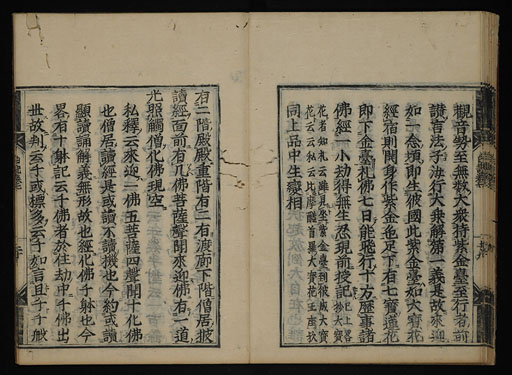 觀音勢至無數大衆持紫金臺至行者前
讃言法子汝行大乗解第一義是故來迎
如一念頃即生彼國此紫金臺如大寶花
經宿則開身作紫金色足下有七寶蓮花
即下金臺礼佛七日能聴行十方歴事諸
佛經一小劫得無生忍現前授記
同上品中生變相
有二階殿殿重階有二右渡廊下階僧居披
讀經面前有几佛菩薩聲聞來迎佛有一道
光照觸僧化佛現空
私釋云來迎一佛五菩薩四聲聞十化佛
也僧居讀經是或讀不讀機也今約或讀
顯讀誦解義無形故也經化佛千躰也今
畧有十躰記云千佛者於住劫中千佛出
世故判云千或標多云千如言且千千般